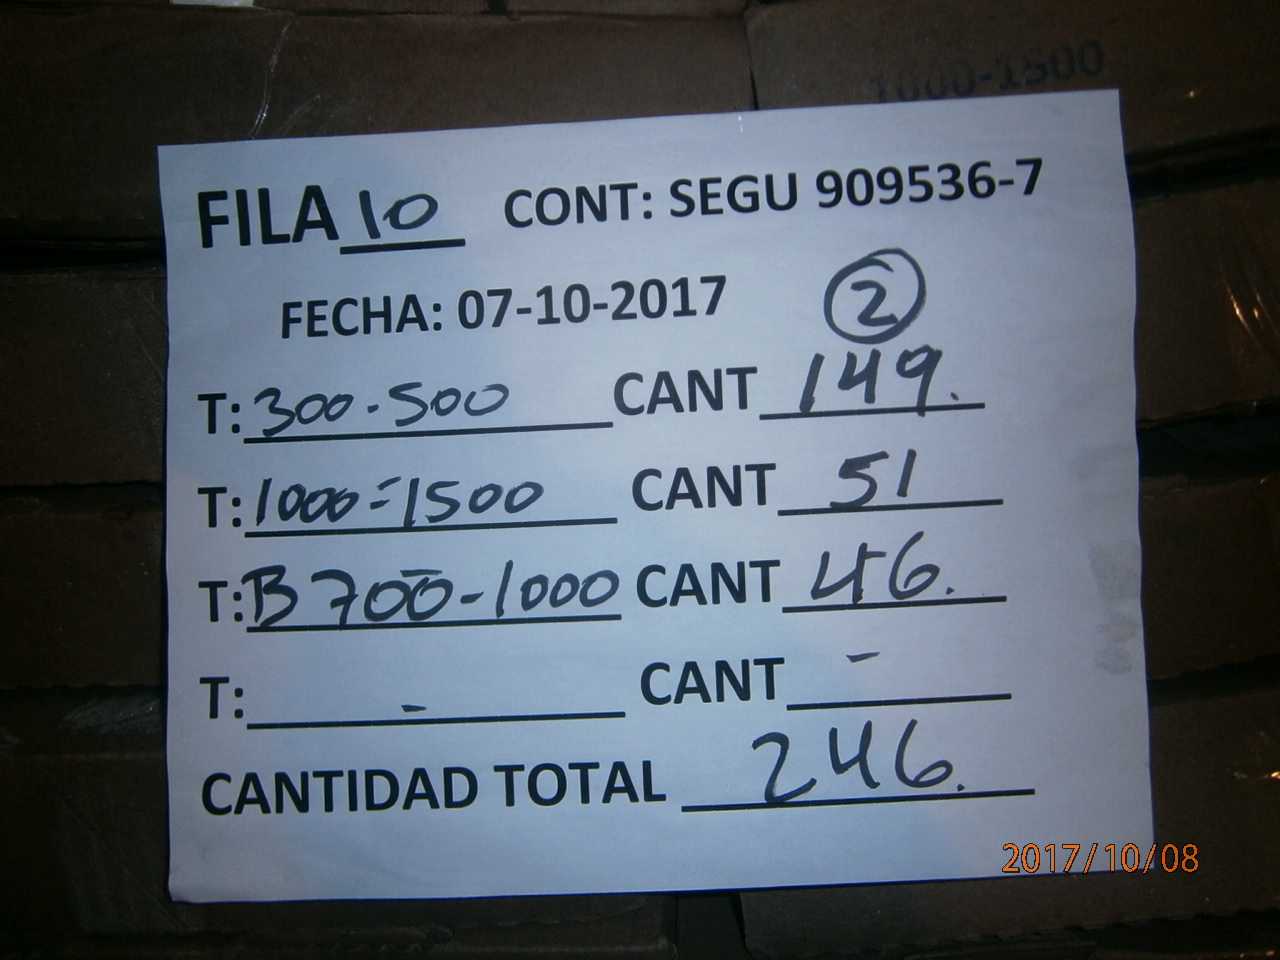 1000-1500
FILA 10 CONT: SEGU 909536-7
FECHA: 07-10-2017 2
T: 300-500 CANT 149.
T: 1000=1500 CANT 51
T: B 700-1000 CANT 46.
T: - CANT -
CANTIDAD TOTAL 246.
2017/10/08